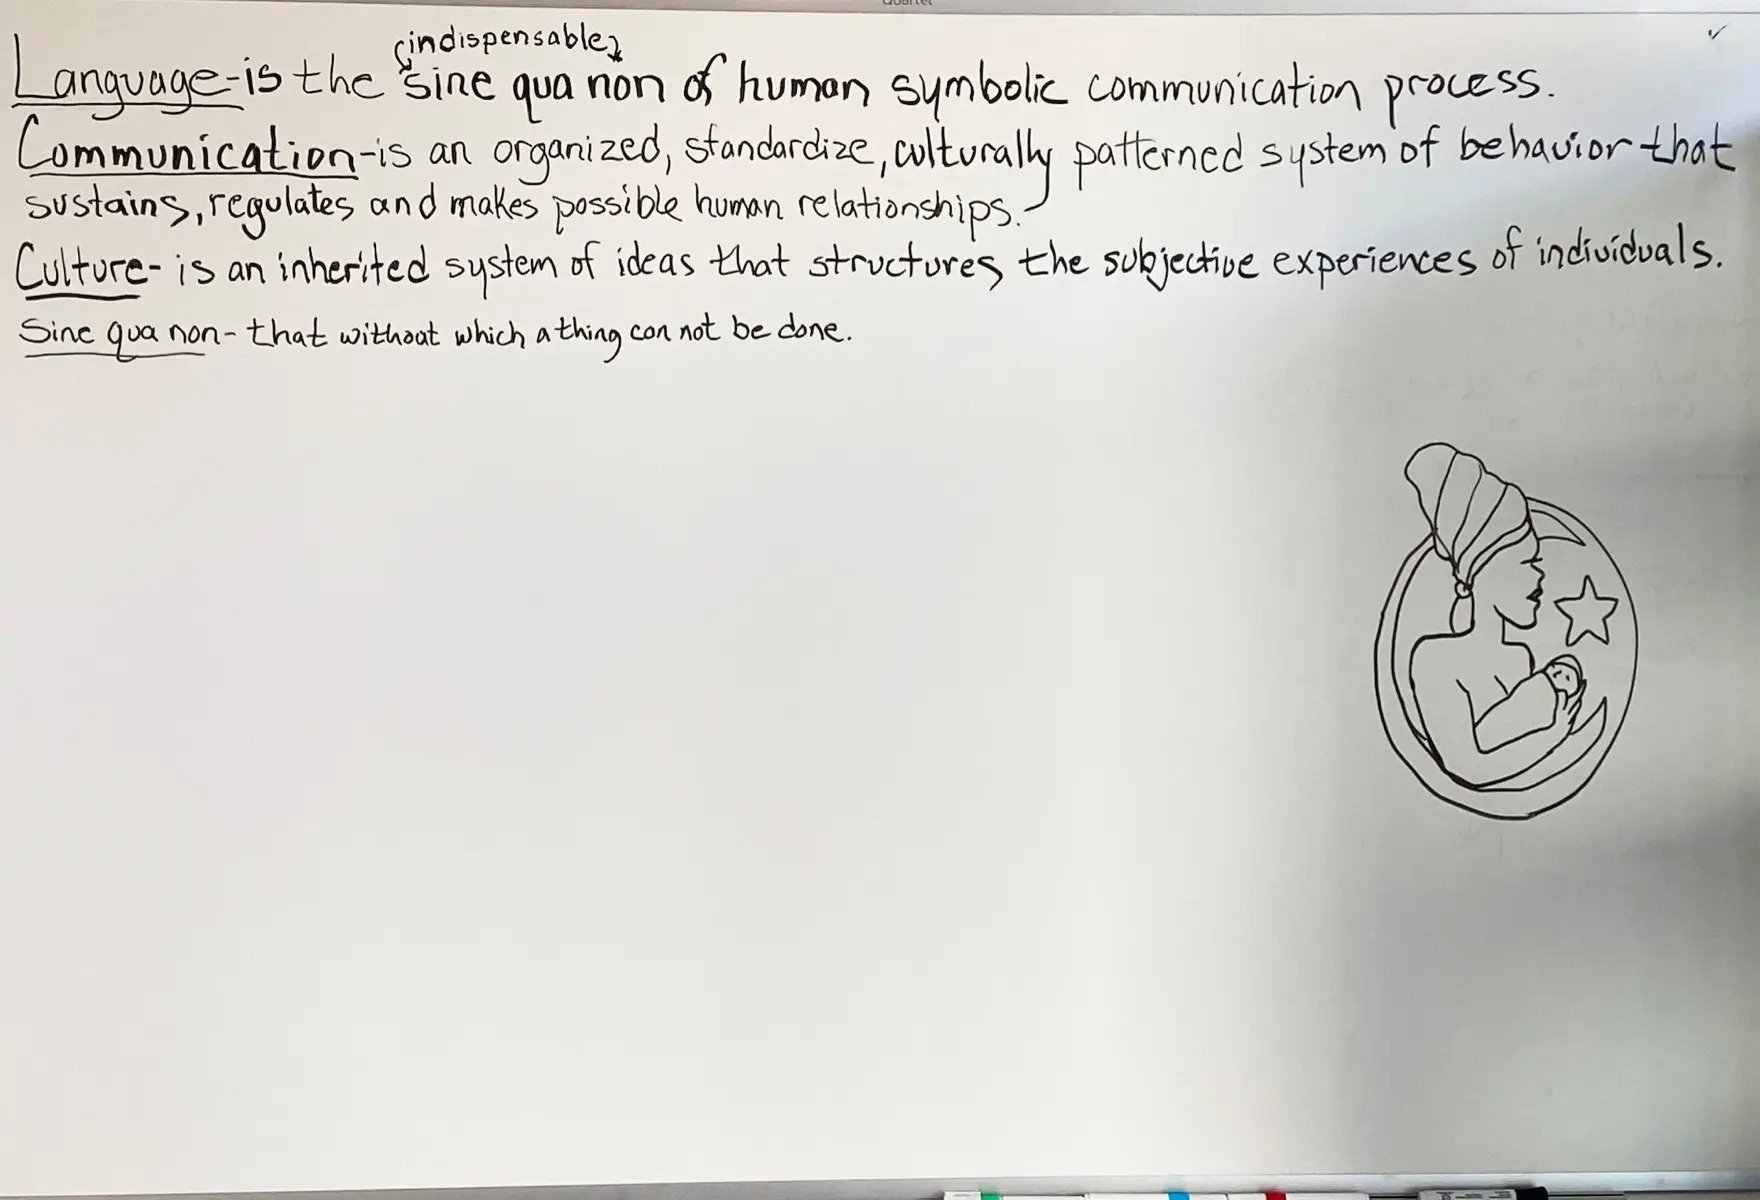 Quartet
(indispensable)
Language-is the sine qua non of human symbolic communication process.
Communication-is an organized, standardize, culturally patterned system of behavior that
sustains, regulates and makes possible human relationships.
Culture- is an inherited system of ideas that structures the subjective experiences of individuals.
Sine qua non- that without which a thing can not be done.